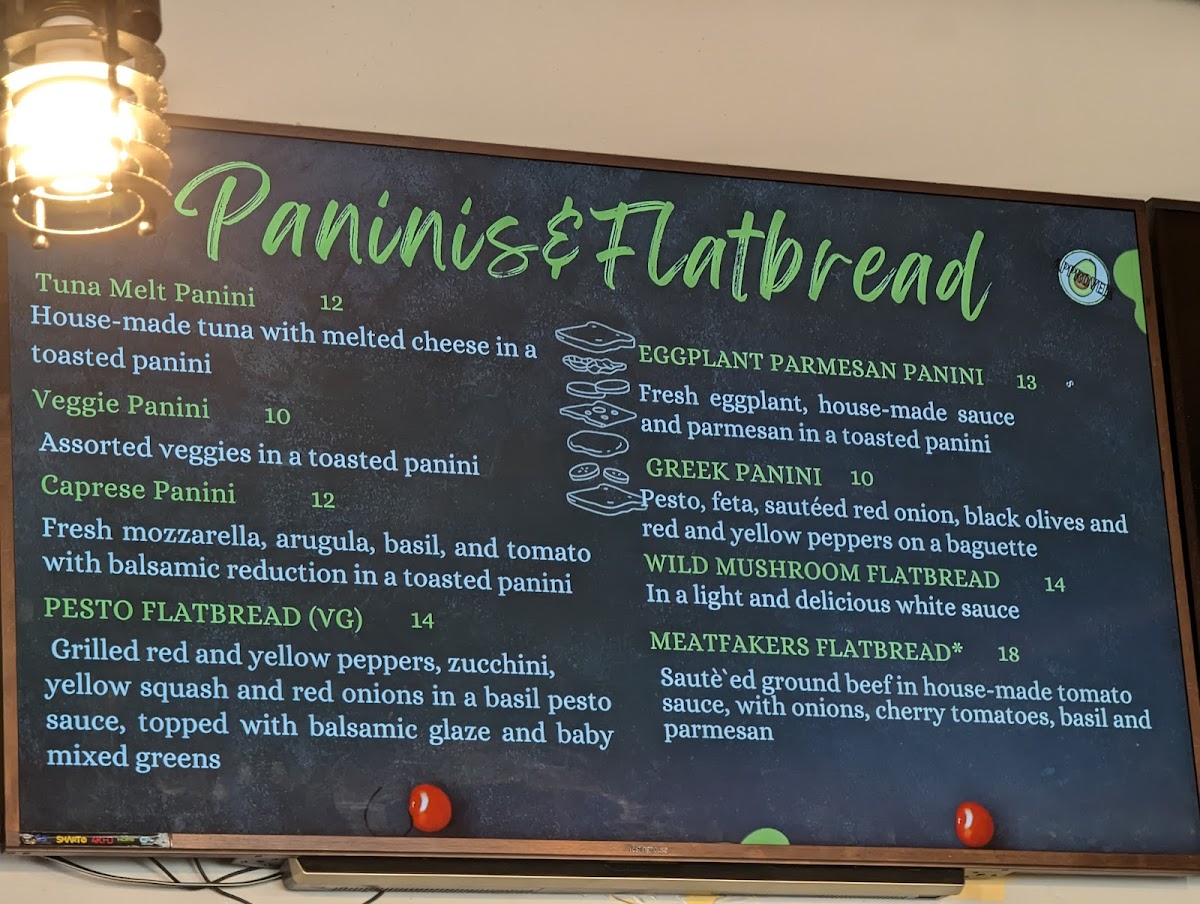 Paninis & Flatbread
Tuna Melt Panini 12
House-made tuna with melted cheese in a
toasted panini
Veggie Panini 10
Assorted veggies in a toasted panini
Caprese Panini 12
Fresh mozzarella, arugula, basil, and tomato
with balsamic reduction in a toasted panini
PESTO FLATBREAD (VG) 14
Grilled red and yellow peppers, zucchini,
yellow squash and red onions in a basil pesto
sauce, topped with balsamic glaze and baby
mixed greens
EGGPLANT PARMESAN PANINI 13
Fresh eggplant, house-made sauce
and parmesan in a toasted panini
GREEK PANINI 10
Pesto, feta, sautéed red onion, black olives and
red and yellow peppers on a baguette
WILD MUSHROOM FLATBREAD 14
In a light and delicious white sauce
MEATFAKERS FLATBREAD* 18
Sautè`ed ground beef in house-made tomato
sauce, with onions, cherry tomatoes, basil and
parmesan